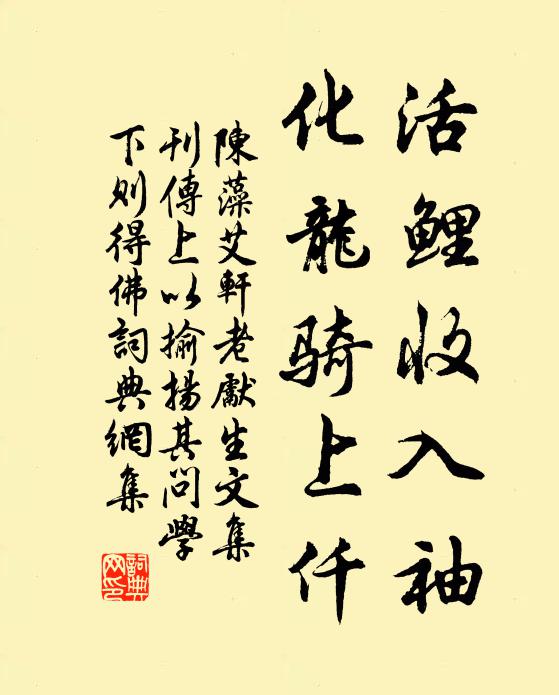 活鲤收入袖
化龍骑上仟
陳藻艾軒老獻生文集
刊傳上以揄揚其問學
下则得佛詞典網集
詞典
网印